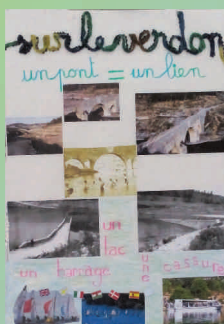 surleverdon
un pont = un lien
un
lac
un barrage
une
cassure